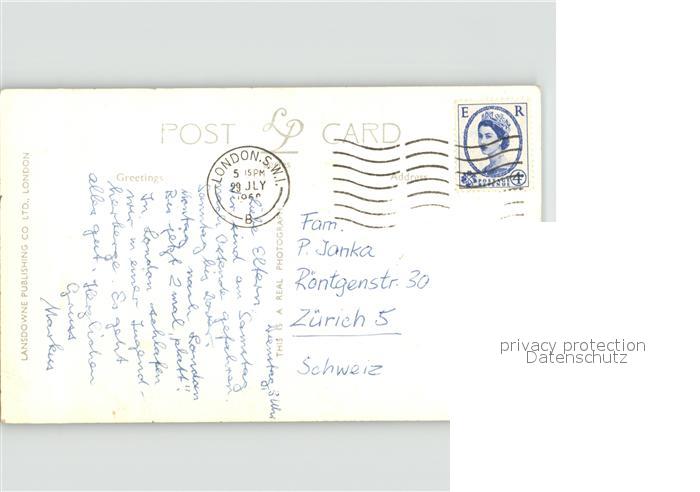 POST LP CARD
Greetings
Address
LANSDOWNE PUBLISHING CO LTD., LONDON
THIS IS A REAL PHOTOGRAPH
LONDON.S.W.1.
5 15PM
29 JLY
B
E R
POSTAGE
Dienstag, Uhr
Liebe Eltern.
Wir sind am Samstag
nach Ostende gefahren.
Sonntag bis Dover.
Montag nach London
Bis jetzt 2 mal „platt"!
In London schlafen
wir in einer Jugend-
herberge. Es geht
alles gut. Herzlichen
Gruss
Markus
Fam.
P. Janka
Röntgenstr. 30
Zürich 5
Schweiz
privacy protection
Datenschutz